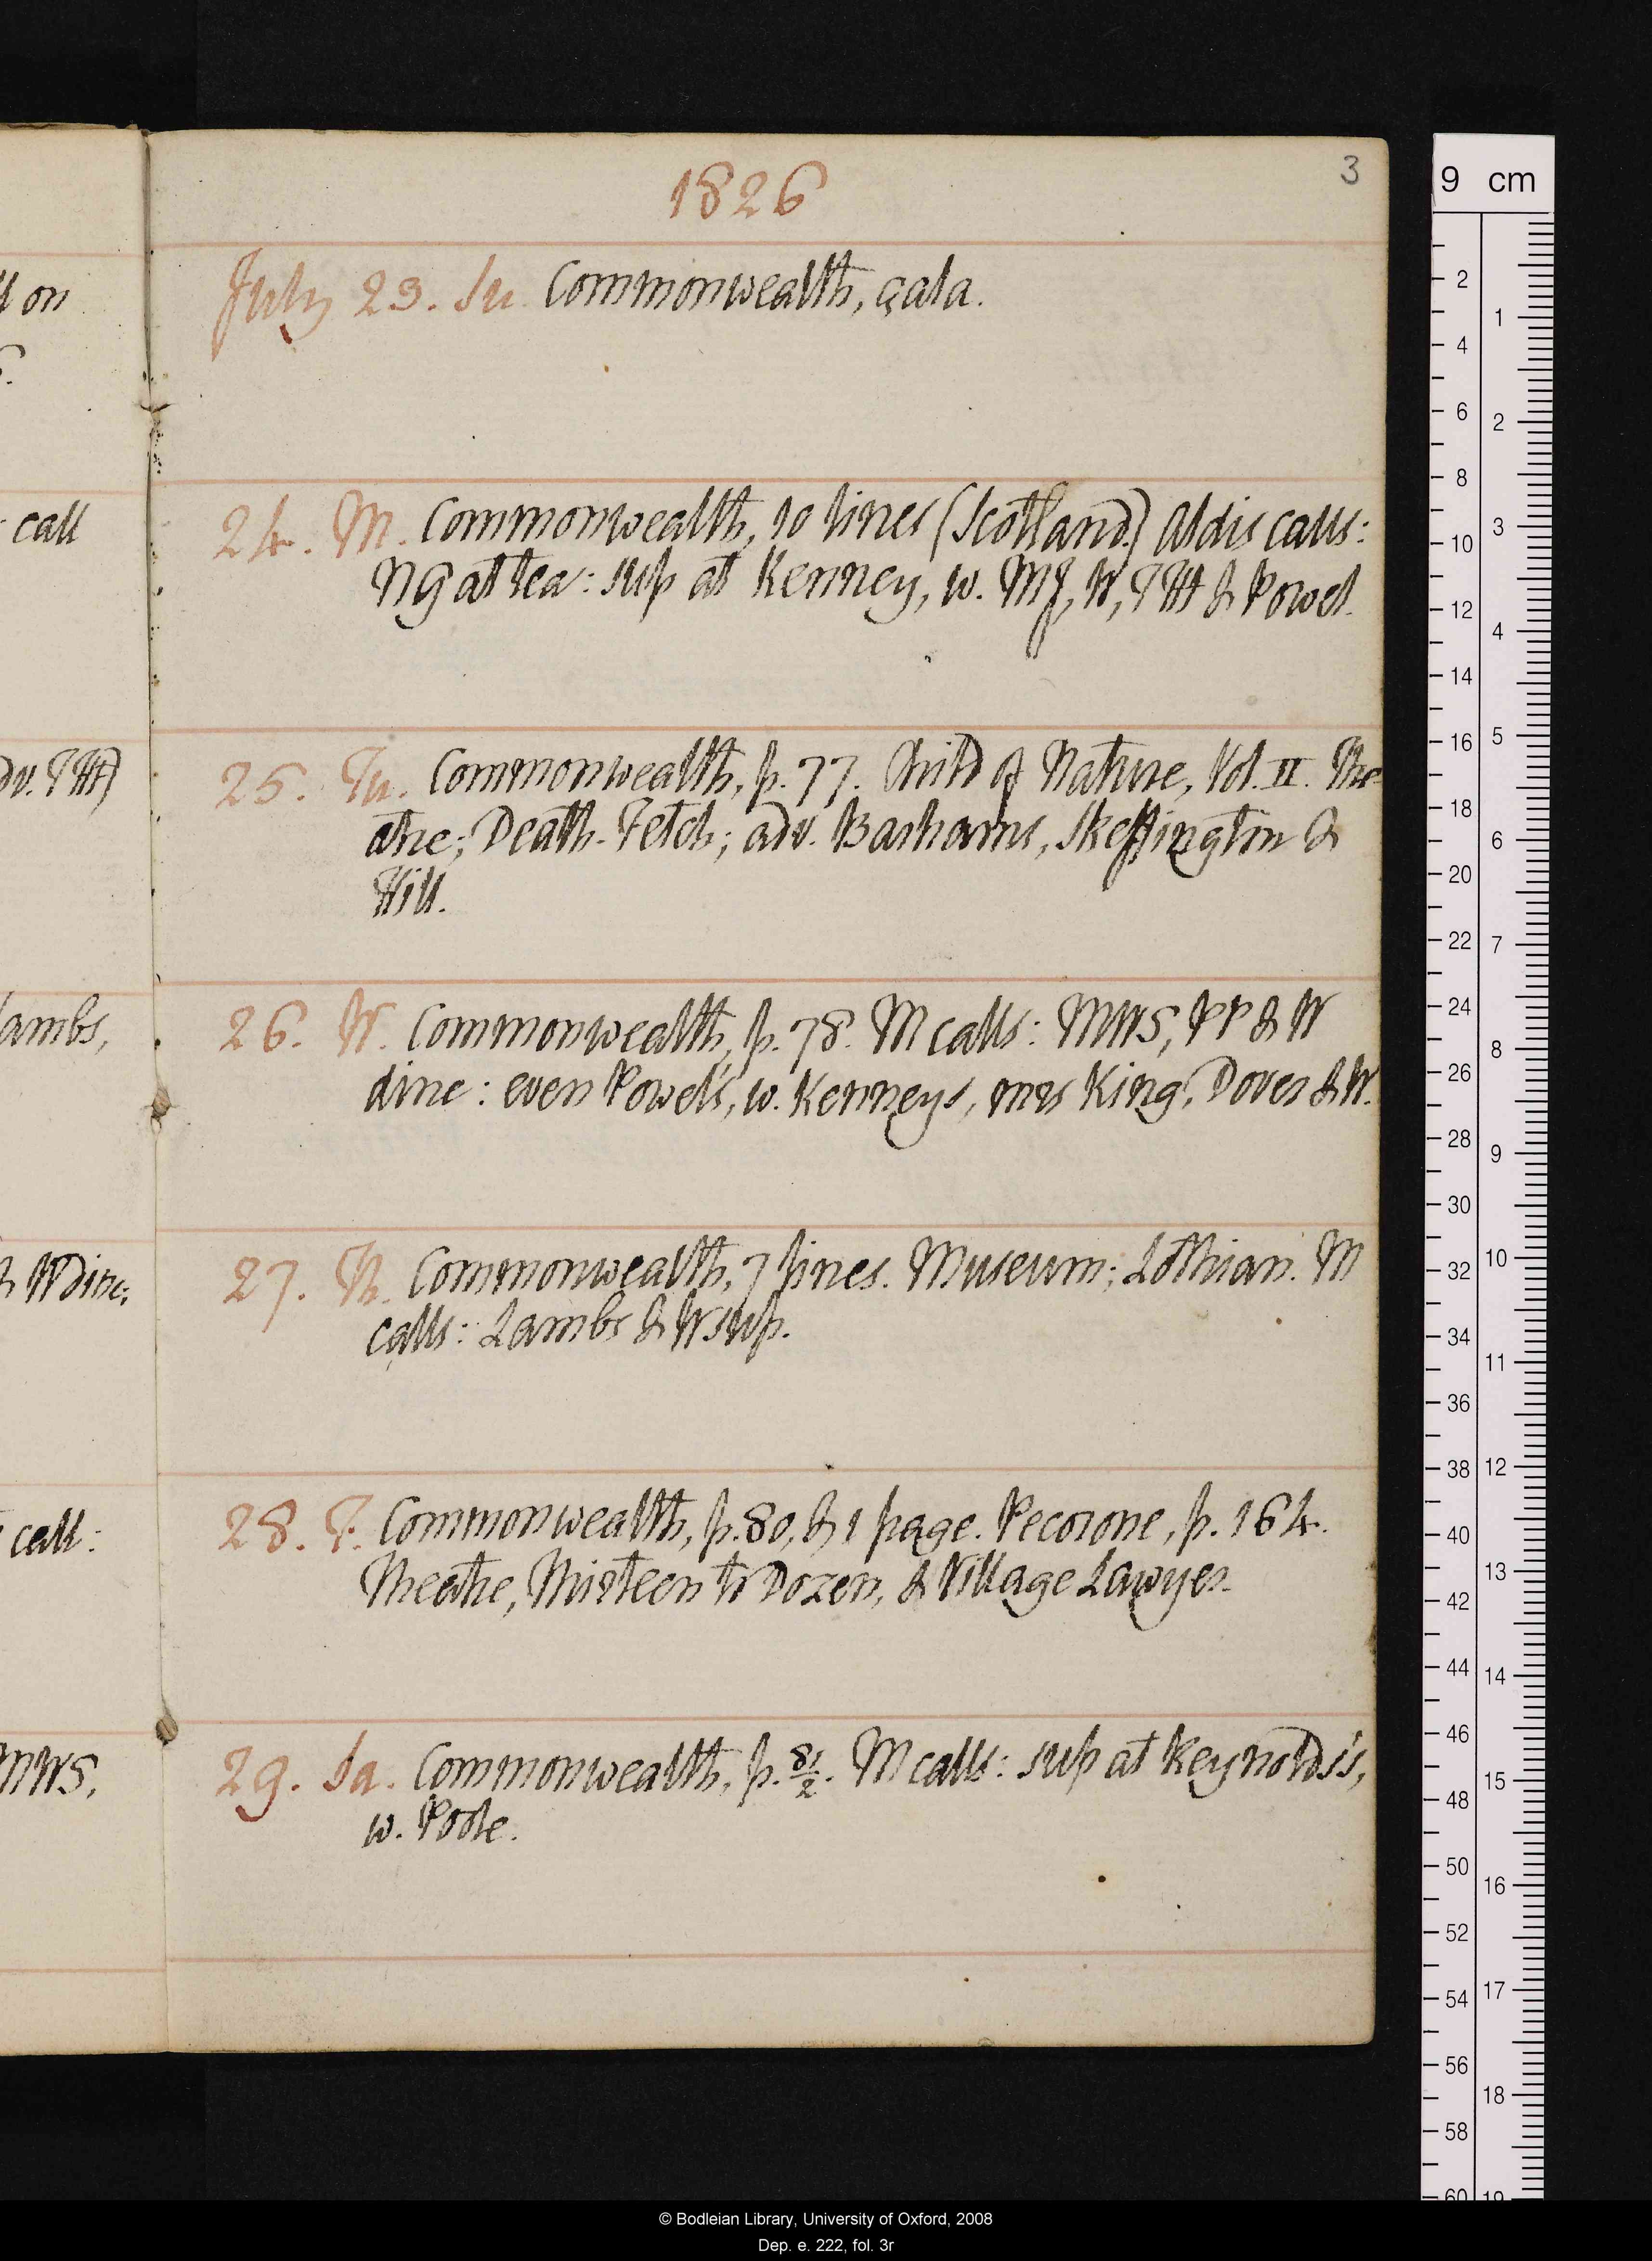 1826
3
July 23. Su. Commonwealth, çala.
24. M. Commonwealth, 10 lines (Scotland.) Aldis calls:
NG at tea: sup at Kenney, w. MJ, W, TTH & Powel.
25. Tu. Commonwealth, p. 77. Child of Nature, Vol. II. The-
atre; Death-Fetch; adv. Bashams, Skeffington &
Hill.
26. W. Commonwealth, p. 78. M calls: MWS, PP & W
dine: even Powel's, w. Kenneys, mrs King, Dover & W.
27. Th. Commonwealth, 7 lines. Museum; Lothian. M
calls: Lambs & W sup.
28. F. Commonwealth, p. 80, & 1 page. Pecorone, p. 164.
Theatre, Thirteen to Dozen, & Village Lawyer.
29. Sa. Commonwealth, p. 81/2. M calls: sup at Reynolds's,
w. Poole.
on
call
adv. TTH)
Lambs,
& W dine:
call:
MWS,
9 cm
2
4
6
8
10
12
14
16
18
20
22
24
26
28
30
32
34
36
38
40
42
44
46
48
50
52
54
56
58
60
1
2
3
4
5
6
7
8
9
10
11
12
13
14
15
16
17
18
19
© Bodleian Library, University of Oxford, 2008
Dep. e. 222, fol. 3r